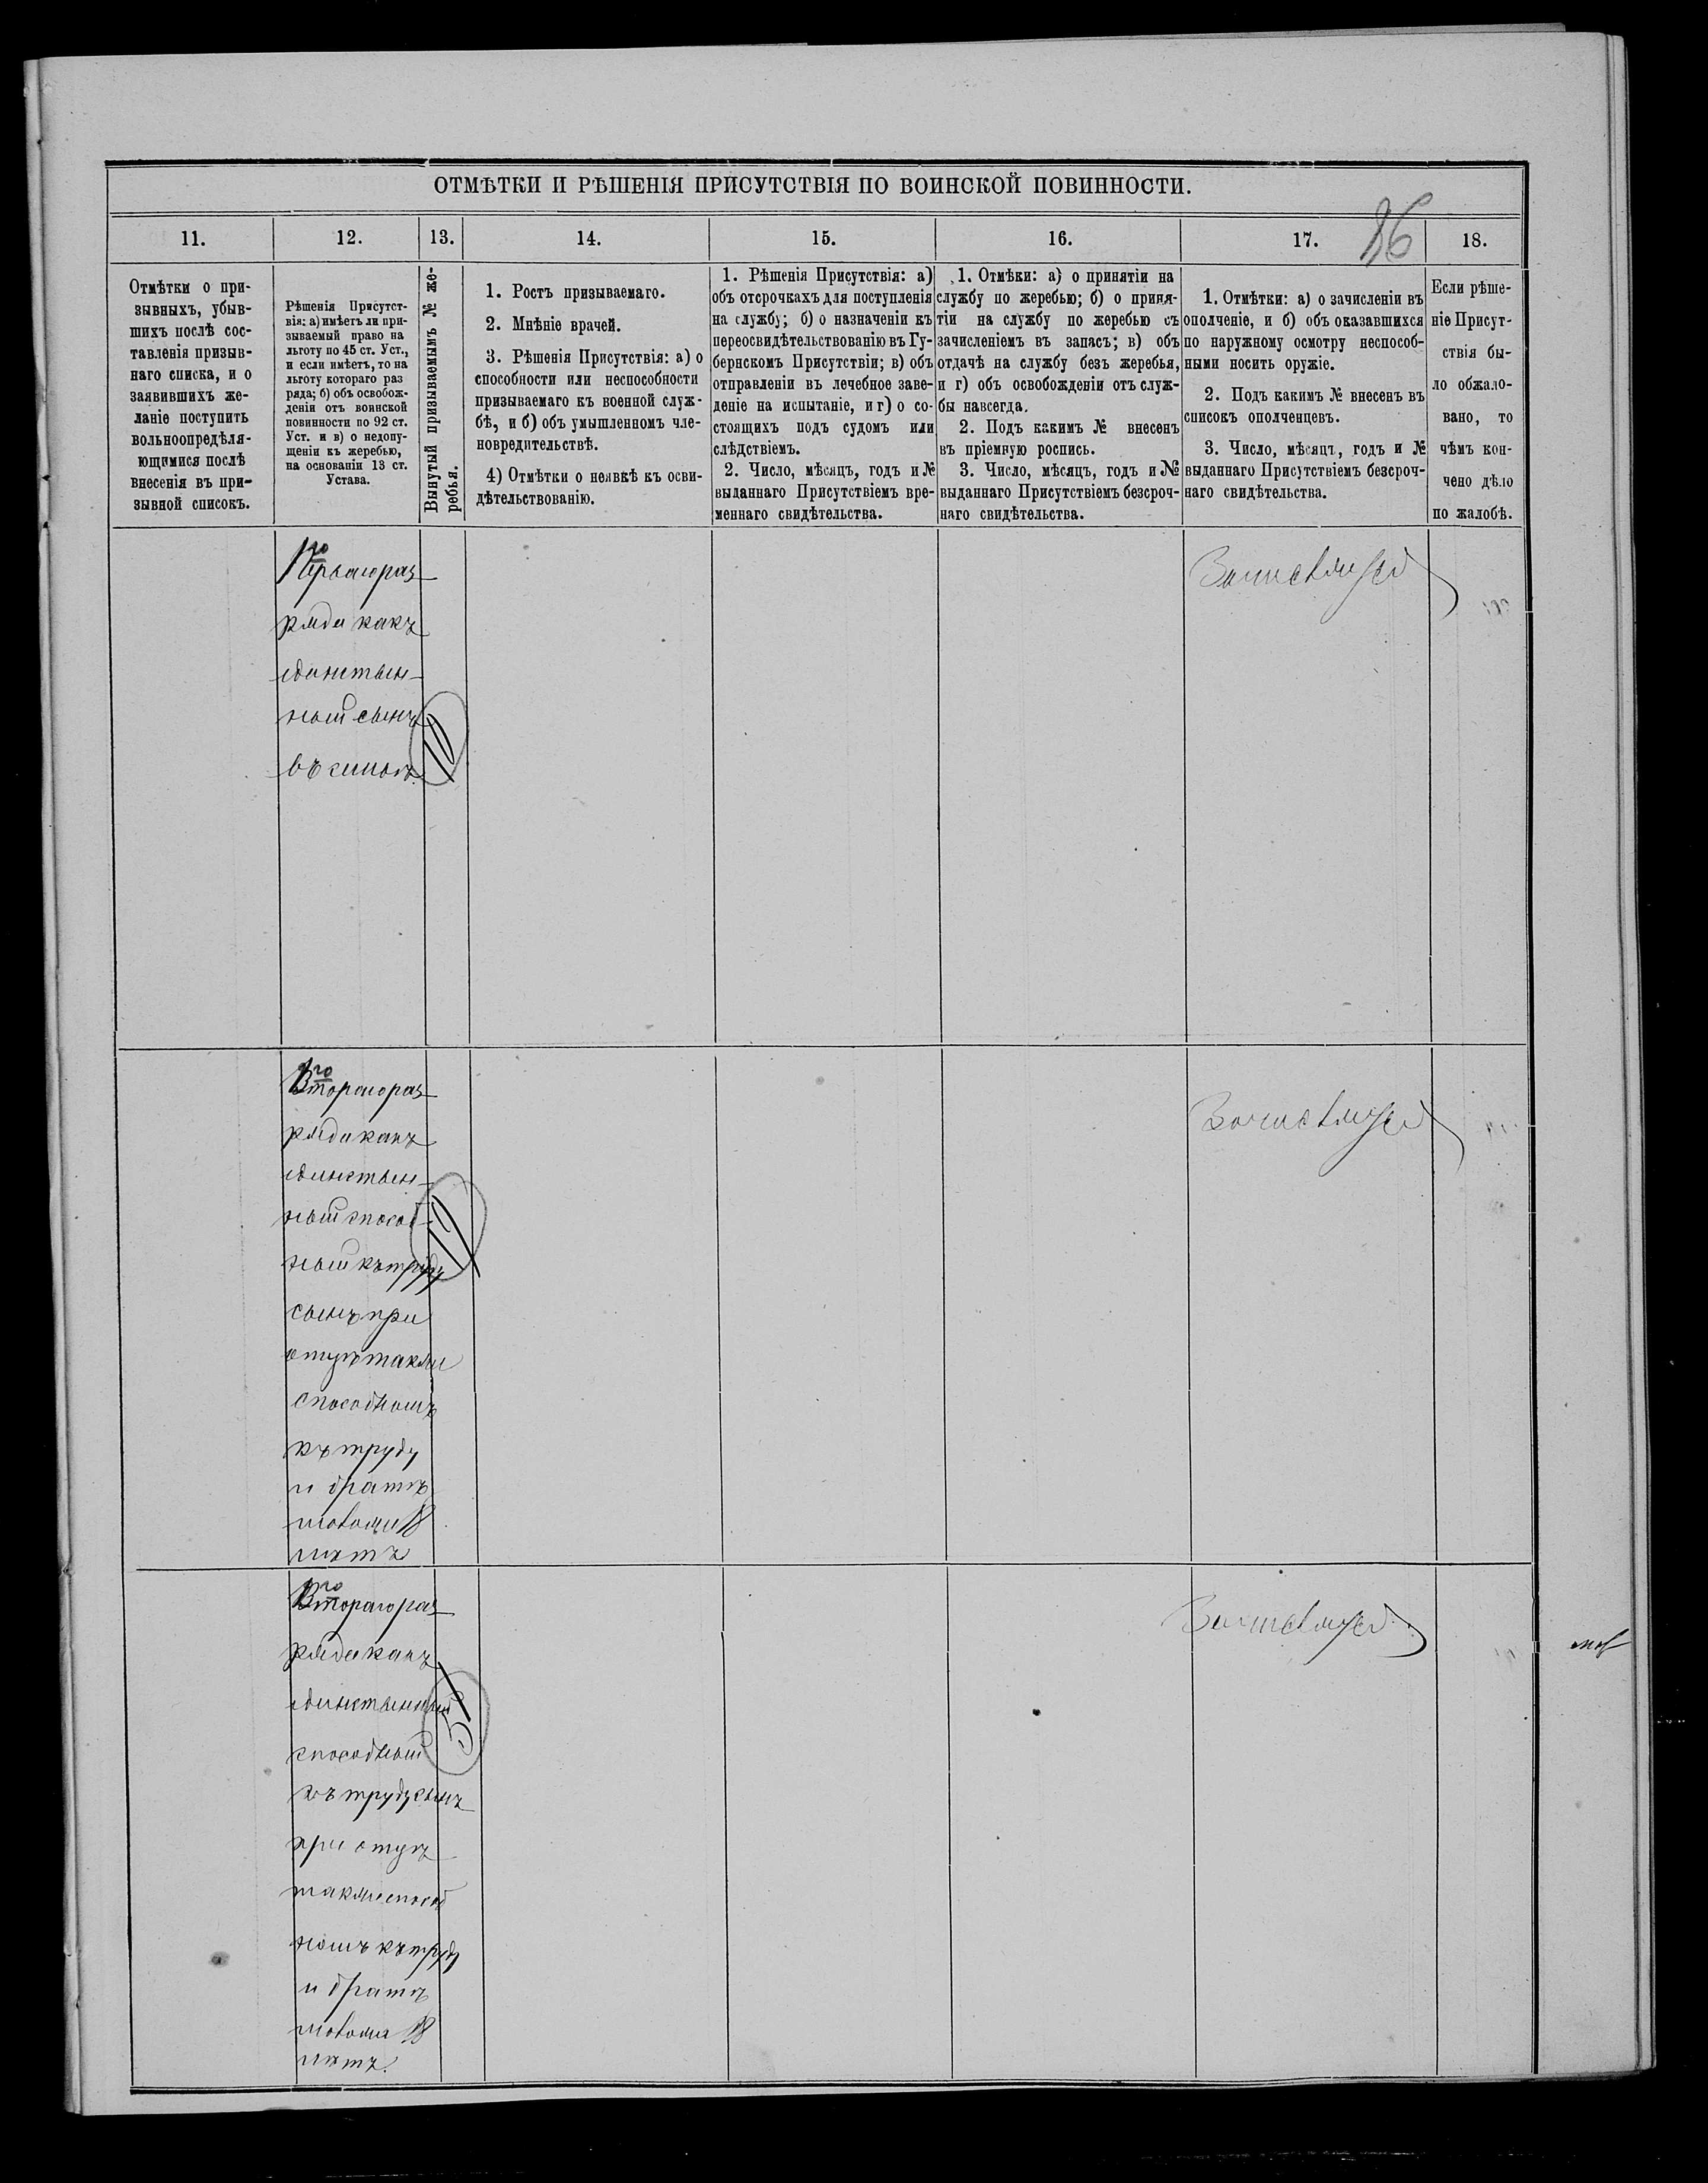 ОТМѢТКИ И РѢШЕНІЯ ПРИСУТСТВІЯ ПО ВОИНСКОЙ ПОВИННОСТИ.
86
11.
12.
13.
14.
15.
16.
17.
18.
Отмѣтки о при-
зывныхъ, убыв-
шихъ послѣ сос-
тавленія призыв-
наго списка, и о
заявившихъ же-
ланіе поступить
вольноопредѣля-
ющимися послѣ
внесенія въ при-
зывной списокъ.
Рѣшенія Присутст-
вія: а) имѣетъ ли при-
зываемый право на
льготу по 45 ст. Уст.,
и если имѣетъ, то на
льготу котораго раз
ряда; б) объ освобож-
деніи отъ воинской
повинности по 92 ст.
Уст. и в) о недопу-
щеніи къ жеребью,
на основаніи 13 ст.
Устава.
Вынутый призываемымъ № же-
ребья.
1. Ростъ призываемаго.
2. Мнѣніе врачей.
3. Рѣшенія Присутствія: а) о
способности или неспособности
призываемаго къ военной служ-
бѣ, и б) объ умышленномъ чле-
новредительствѣ.
4) Отмѣтки о неявкѣ къ осви-
дѣтельствованію.
1. Рѣшенія Присутствія: а)
объ отсрочкахъ для поступленія
на службу; б) о назначеніи къ
переосвидѣтельствованію въ Гу-
бернскомъ Присутствіи; в) объ
отправленіи въ лечебное заве-
деніе на испытаніе, и г) о со-
стоящихъ подъ судомъ или
слѣдствіемъ.
2. Число, мѣсяцъ, годъ и №
выданнаго Присутствіемъ вре-
меннаго свидѣтельства.
1. Отмѣки: а) о принятіи на
службу по жеребью; б) о приня-
тіи на службу по жеребью съ
зачисленіемъ въ запасъ; в) объ
отдачѣ на службу безъ жеребья,
и г) объ освобожденіи отъ служ-
бы навсегда.
2. Подъ какимъ № внесенъ
въ пріемную роспись.
3. Число, мѣсяцъ, годъ и №
выданнаго Присутствіемъ безсроч-
наго свидѣтельства.
1. Отмѣтки: а) о зачисленіи въ
ополченіе, и б) объ оказавшихся
по наружному осмотру неспособ-
ными носить оружіе.
2. Подъ какимъ № внесенъ въ
списокъ ополченцевъ.
3. Число, мѣсяцъ, годъ и №
выданнаго Присутствіемъ безсроч-
наго свидѣтельства.
Если рѣше-
ніе Присут-
ствія бы-
ло обжало-
вано, то
чѣмъ кон-
чено дѣло
по жалобѣ.
1го
Перваго раз-
ряда какъ
единствен-
ный сынъ
въ семьѣ.
10
2го
Втораго раз-
ряда какъ
единствен-
ный способ-
ный къ труду
сынъ при
отцѣ также
способномъ
къ труду
и братѣ
моложе 18
лѣтъ
Втораго раз-
ряда какъ
единственный
способный
къ труду сынъ
при отцѣ
также способ
номъ къ труду
и братѣ
моложе 18
лѣтъ.
51